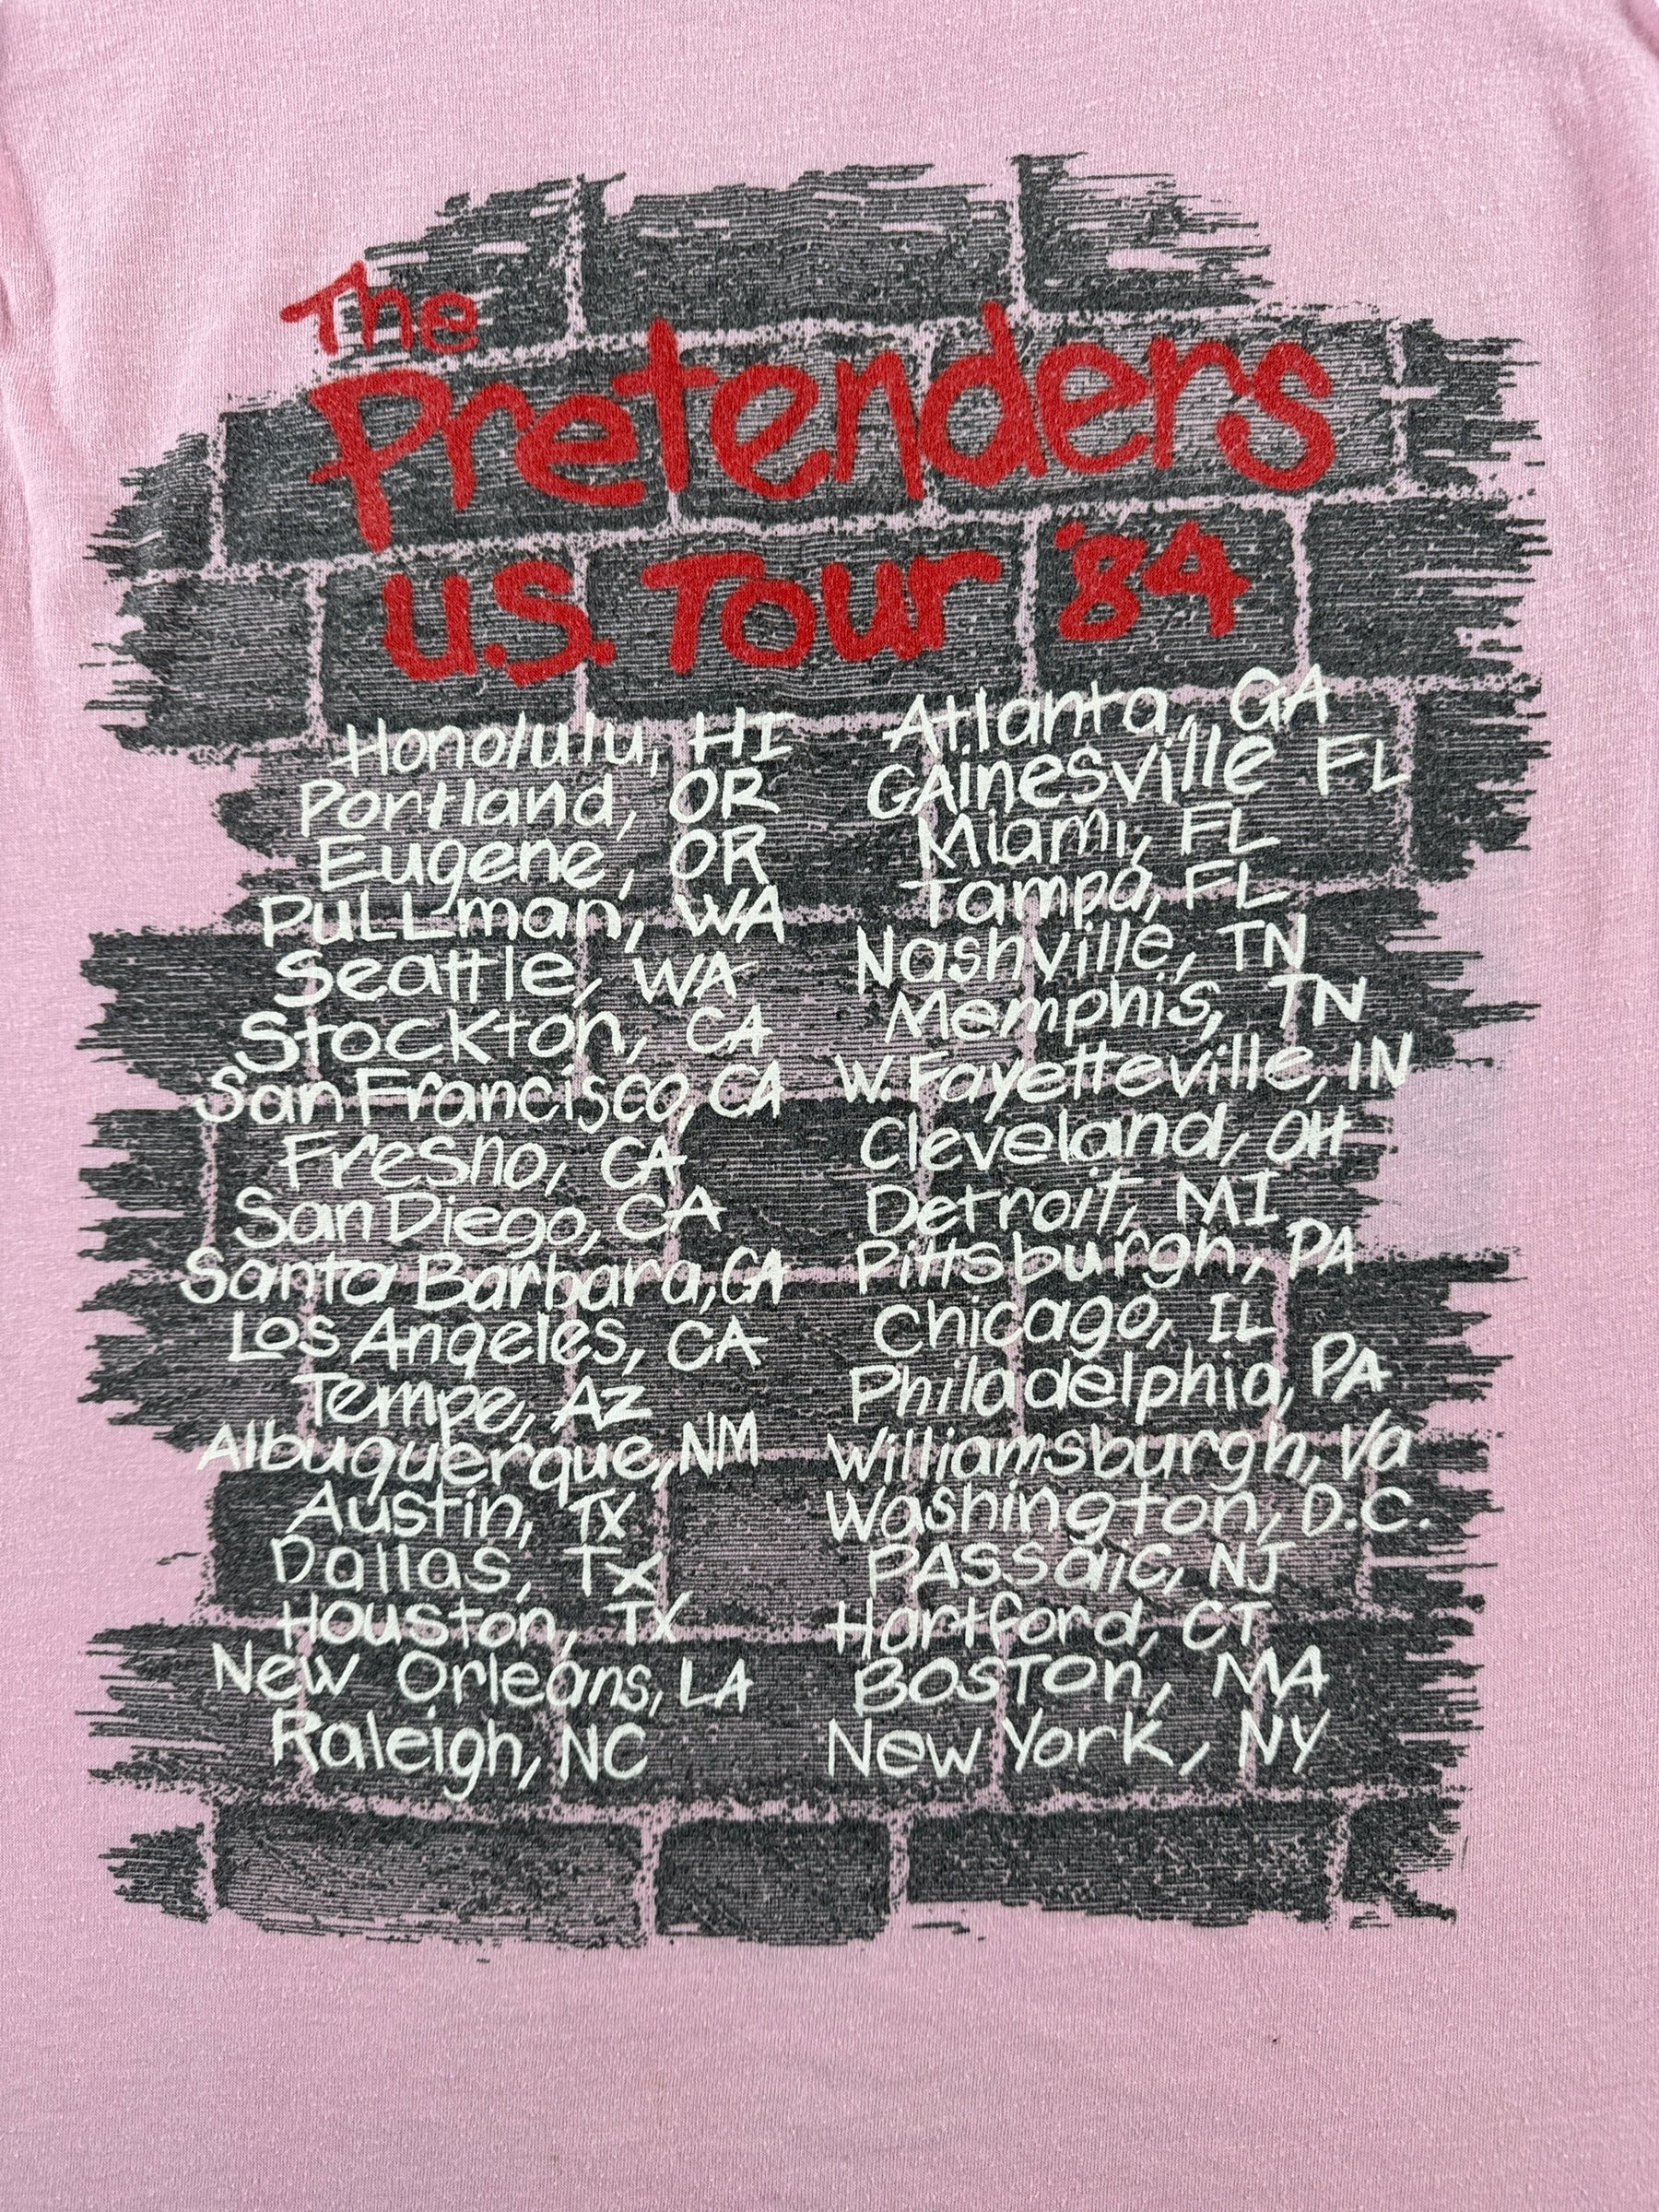 The
Pretenders
U.S. Tour '84
Honolulu, HI
Portland, OR
Eugene, OR
PuLLman, WA
Seattle, WA
Stockton, CA
San Francisco, CA
Fresno, CA
San Diego, CA
Santa Barbara, CA
Los Angeles, CA
Tempe, AZ
Albuquerque, NM
Austin, TX
Dallas, Tx
Houston, TX
New Orleans, LA
Raleigh, NC
Atlanta, GA
GAinesville FL
Miami, FL
Tampa, FL
Nashville, TN
Memphis, TN
W. Fayetteville, IN
Cleveland, OH
Detroit, MI
Pittsburgh, PA
Chicago, IL
Philadelphia, PA
Williamsburgh, Va
Washington, D.C.
PAssaic, NJ
Hartford, CT
BOSTON, MA
New York, NY